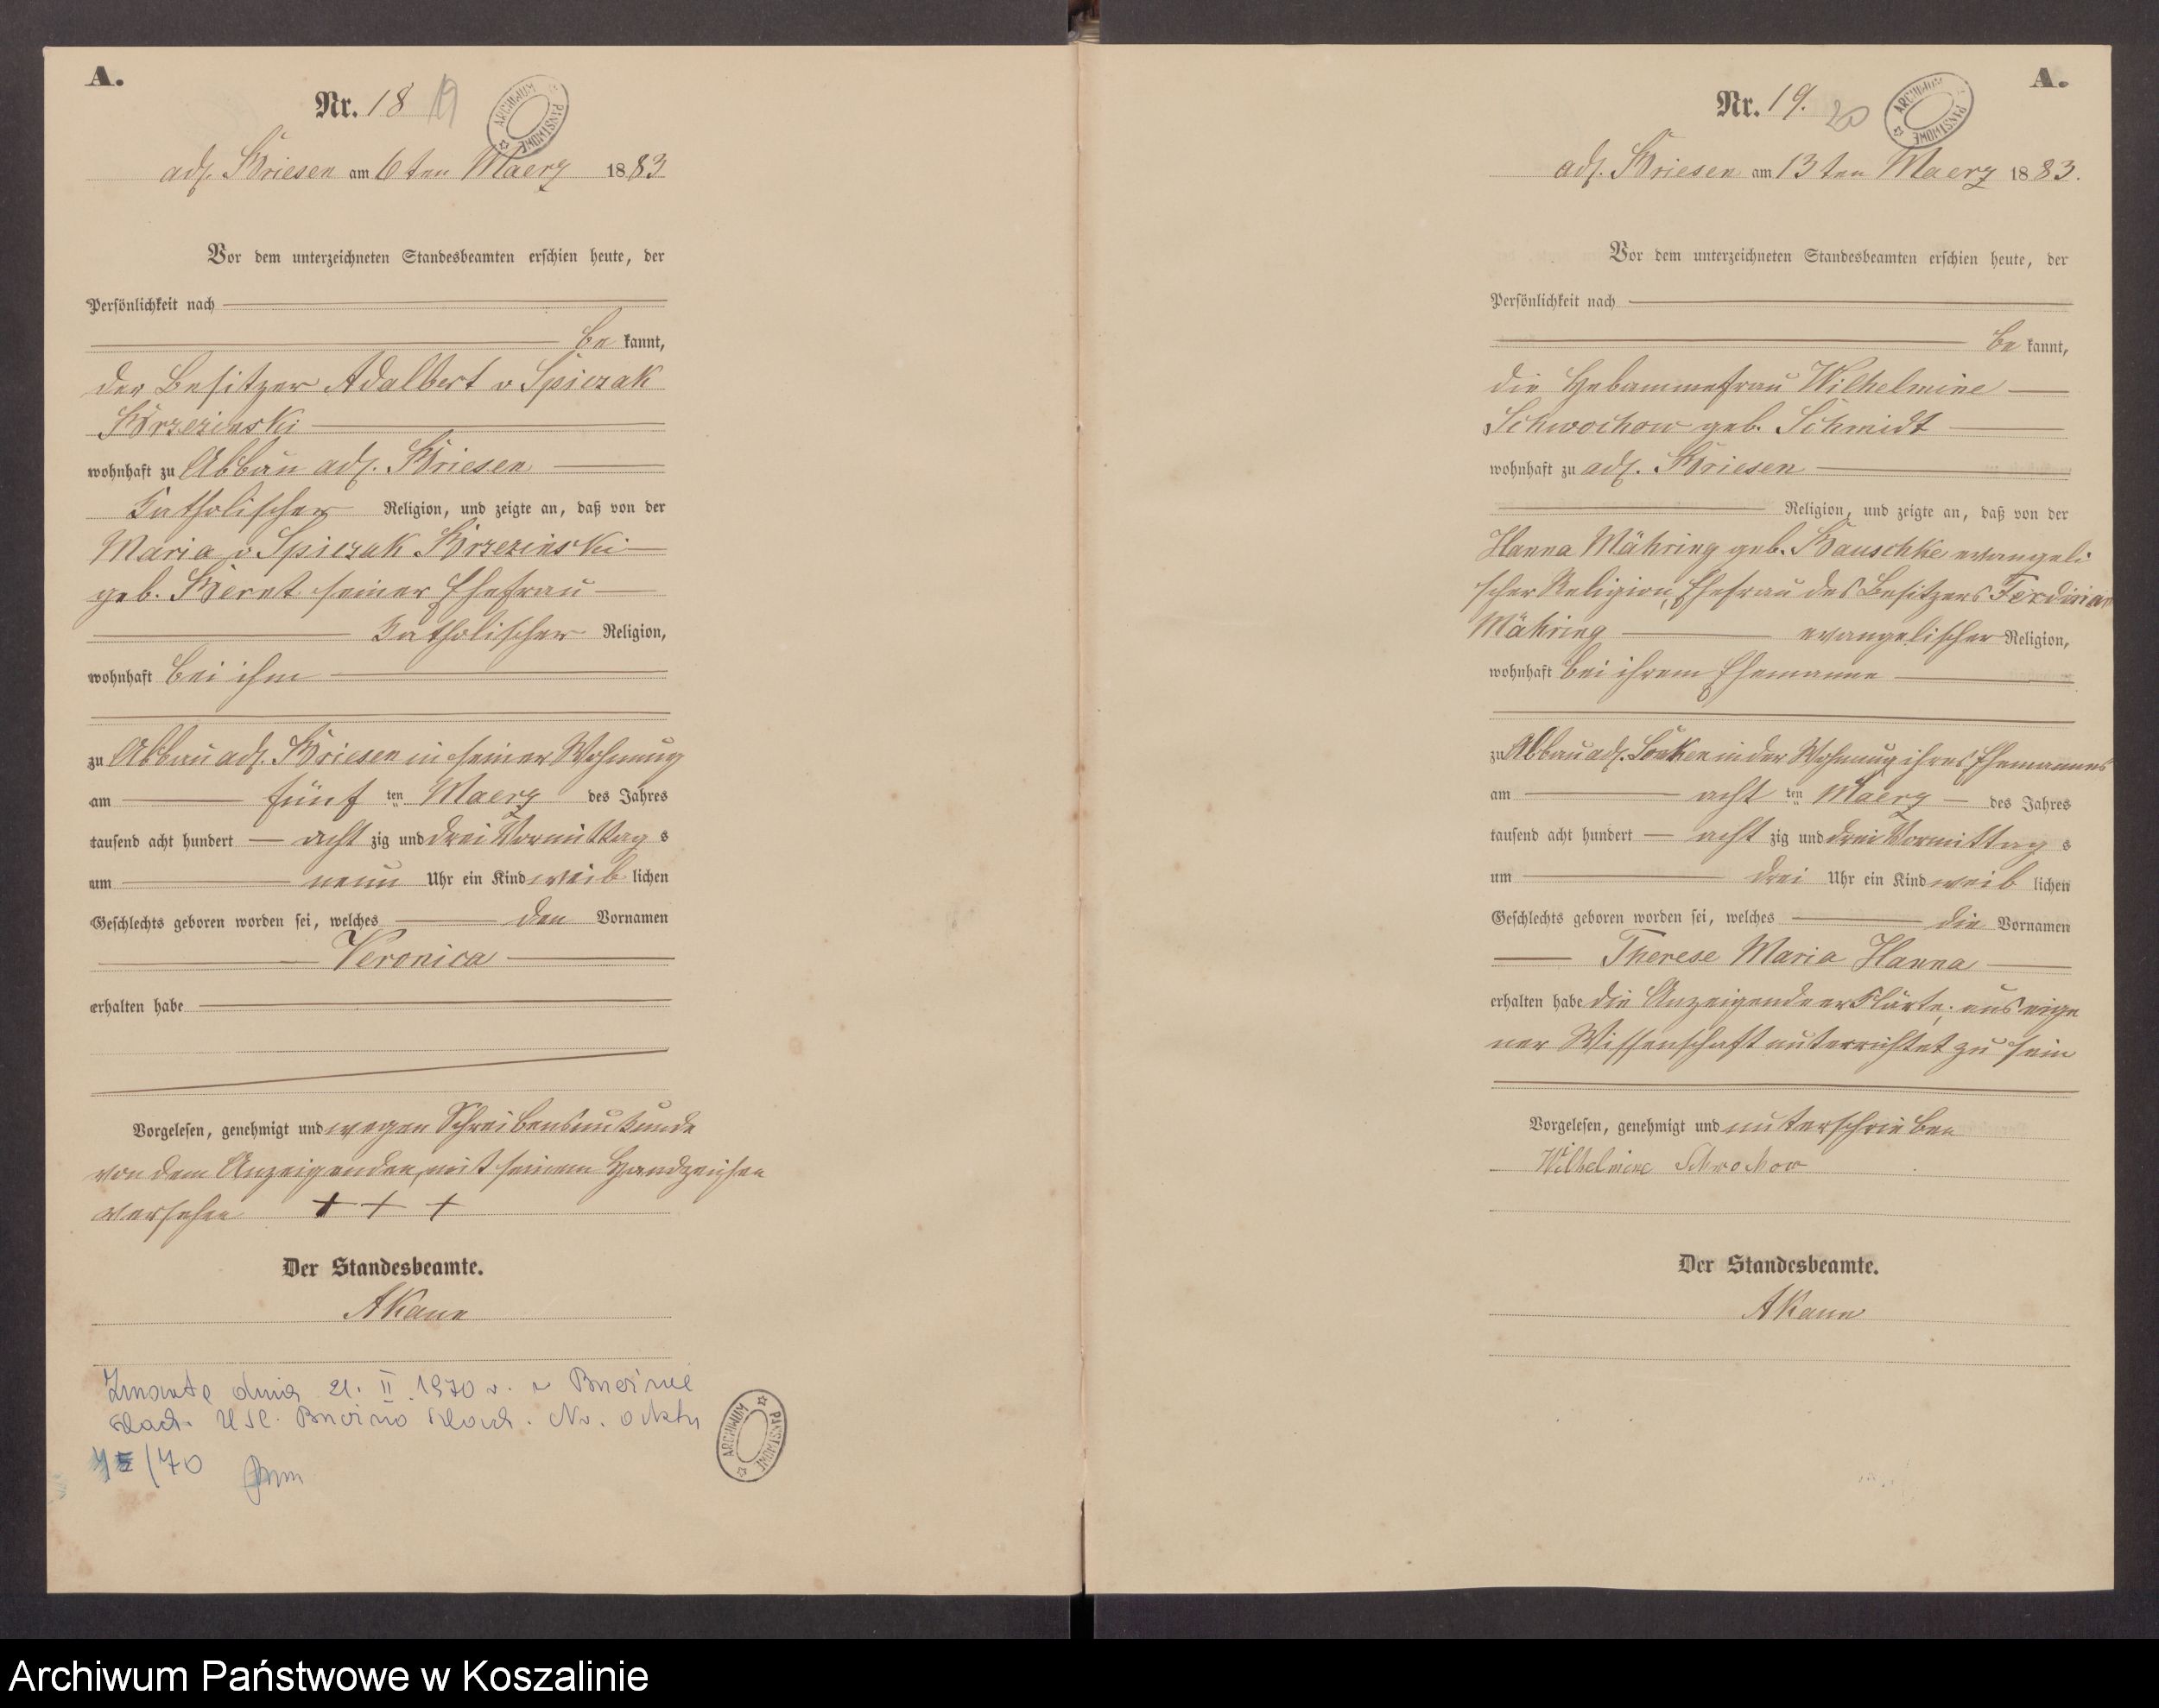 A.
Nr. 18 19
ARCHIWUM PAŃSTWOWE
adl. Briesen am 6ten Maerz 1883
Vor dem unterzeichneten Standesbeamten erschien heute, der
Persönlichkeit nach
be kannt,
der Besitzer Adalbert v Spiczak
Brzezinski
wohnhaft zu Abbau adl. Briesen
Katholischer Religion, und zeigte an, daß von der
Maria v Spiczak Brzezinski
geb. Bernt seiner Ehefrau
Katholischer Religion,
wohnhaft bei ihm
zu Abbau adl. Briesen in seiner Wohnung
am fünf ten Maerz des Jahres
tausend acht hundert acht zig und drei Vormittag s
um neun Uhr ein Kind weib lichen
Geschlechts geboren worden sei, welches den Vornamen
Veronica
erhalten habe
Vorgelesen, genehmigt und wegen Schreibensunkunde
von dem Anzeigenden, mit seinem Handzeichen
versehen + + +
Der Standesbeamte.
AKann
dnia 21. II. 1970 r. w
USC. Nr. aktu
/70
ARCHIWUM PAŃSTWOWE
A.
Nr. 19. 20
ARCHIWUM PAŃSTWOWE
adl. Briesen am 13ten Maerz 1883.
Vor dem unterzeichneten Standesbeamten erschien heute, der
Persönlichkeit nach
be kannt,
die Hebammefrau Wilhelmine
Schwochow geb. Schmidt
wohnhaft zu adl. Briesen
Religion, und zeigte an, daß von der
Hanna Mähring geb. Bauschke evangeli
scher Religion, Ehefrau des Besitzers Ferdinan
Mähring evangelischer Religion,
wohnhaft bei ihrem Ehemanne
zu Abbau adl. in der Wohnung ihres Ehemannes
am acht ten Maerz des Jahres
tausend acht hundert acht zig und drei Vormittag s
um drei Uhr ein Kind weib lichen
Geschlechts geboren worden sei, welches die Vornamen
Therese Maria Hanna
erhalten habe die Anzeigende erklärte, aus eige
ner Wissenschaft unterrichtet zu sein
Vorgelesen, genehmigt und unterschrieben
Wilhelmine Schwochow
Der Standesbeamte.
AKann
Archiwum Państwowe w Koszalinie